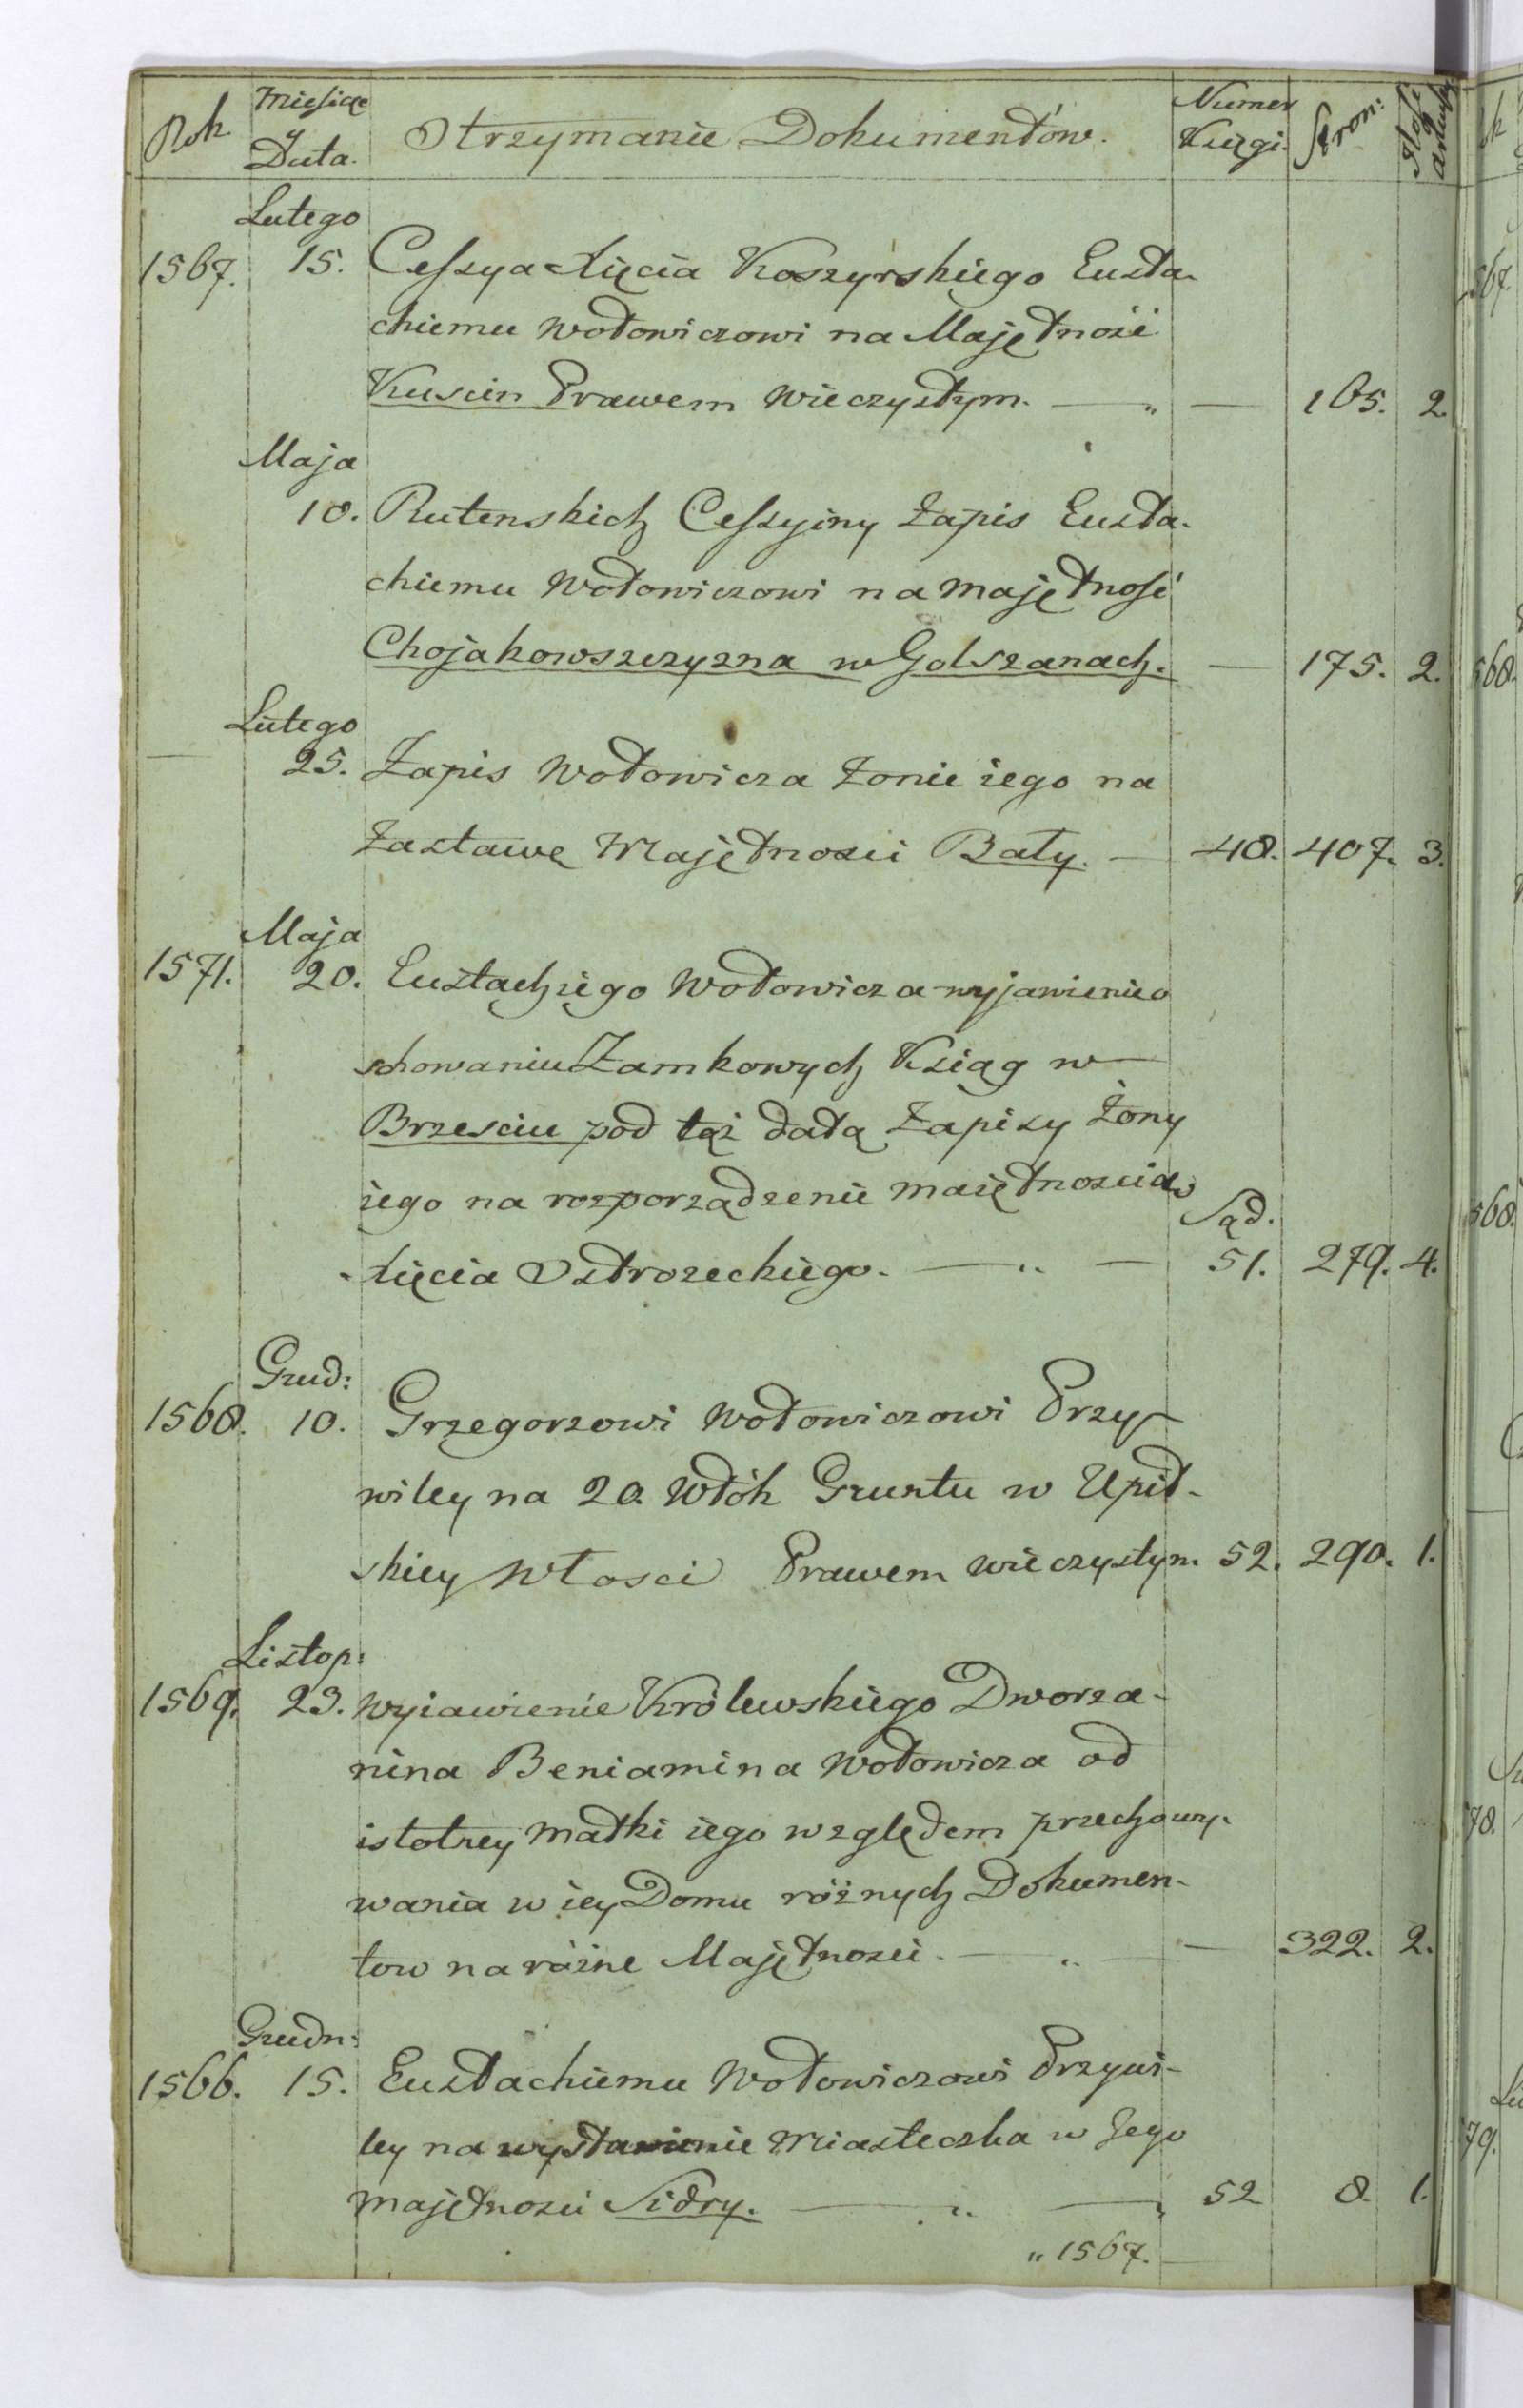 Rok Miesiąc y Data. Otrzymanie Dokumentów. Numer Księgi. Stron: Ilość arkuszy
Lutego
1567. 15. Cessya Xięcia Koszyrskiego Eusta-
chiemu Wołowiczowi na Majętność
Kuscin Prawem Wieczystym. — „ — 165. 2.
Maja
10. Rutenskich Cessyiny Zapis Eusta-
chiemu Wołowiczowi na Majętność
Chojakowszczyzna w Golszanach. — 175. 2.
Lutego
— 25. Zapis Wołowicza Żonie iego na
Zastawę Majętności Bały. — 48. 407. 3.
Maja
1571. 20. Eustachiego Wołowicza wyjawienie o
schowaniu Zamkowych Ksiąg w
Brzesciu pod tąż datą Zapisy Żony
iego na rozporządzenie maiętnościa
Sąd.
Xięcia Ostrozeckiego. — „ — 51. 279. 4.
Grud:
1568. 10. Grzegorzowi Wołowiczowi Przy-
wiley na 20. Włók Gruntu w Upit-
skiey Włosci Prawem wieczystym. 52. 290. 1.
Listop:
1569. 23. Wyiawienie Królewskiego Dworza-
nina Beniamina Wołowicza od
istotney Matki iego względem przechowy-
wania w iey Domu różnych Dokumen-
tow na różne Majętności. — „ — 322. 2.
Grudn:
1566. 15. Eustachiemu Wołowiczowi Przywi-
ley na wystawienie Miasteczka w Jego
majętności Sidry. — „ — 52 8. 1.
„ 1567. —